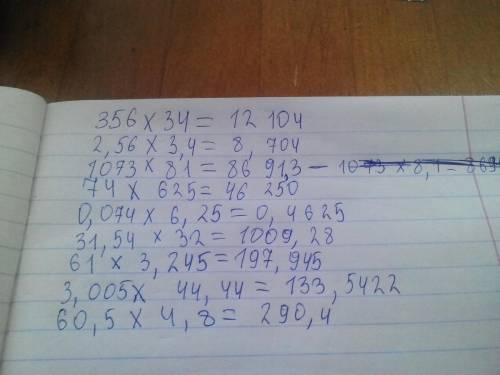 356 x 34 = 12 104
2,56 x 3,4 = 8, 704
1073 x 81 = 86 91,3 - 1073 x 8,1 = 869
74 x 625 = 46 250
0,074 x 6, 25 = 0, 4625
31,54 x 32 = 1009, 28
61 x 3, 245 = 197, 945
3,005 x 44,44 = 133, 5422
60,5 x 4, 8 = 290,4